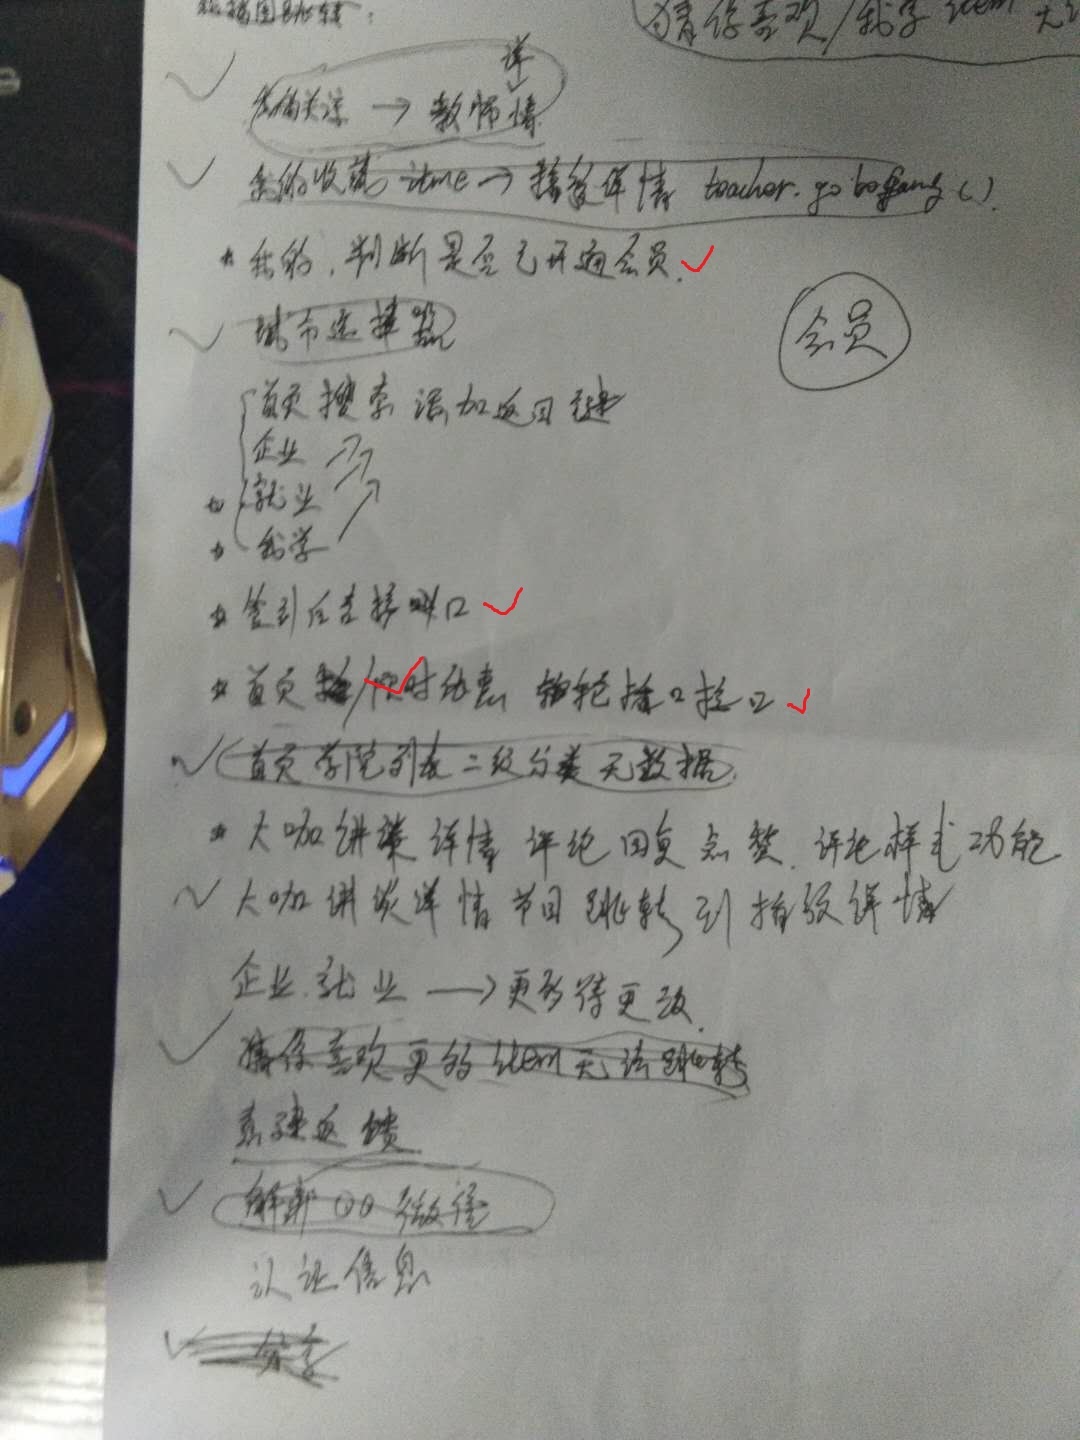 猜你喜欢/我学 item 无法
轮播图跳转:
我的关注 → 教师详情
我的收藏 item → 播放详情 teacher.go bofang().
* 我的,判断是否已开通会员.
城市选择器
会员
首页搜索 添加返回键
企业
* 就业
* 我学
* 签到后去接口
* 首页 /限时优惠 轮播接口
首页学院列表二级分类无数据.
* 大咖讲谈 详情 评论 回复 点赞. 评论样式功能
大咖讲谈详情节目跳转到播放详情
企业.就业 → 更多待更改.
猜你喜欢更多item无法跳转
意见反馈
解绑QQ 微信
认证信息
分享